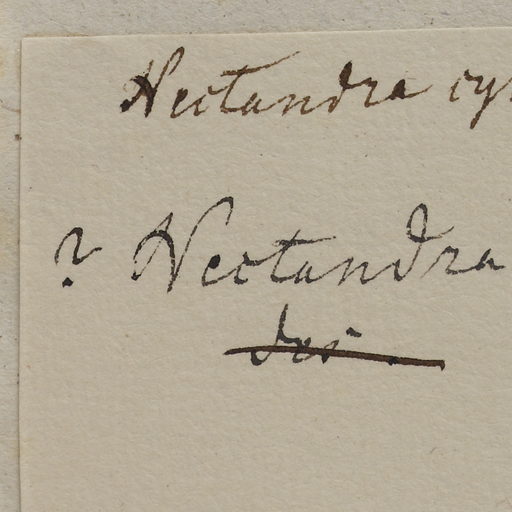 Nectandra cy
? Nectandra